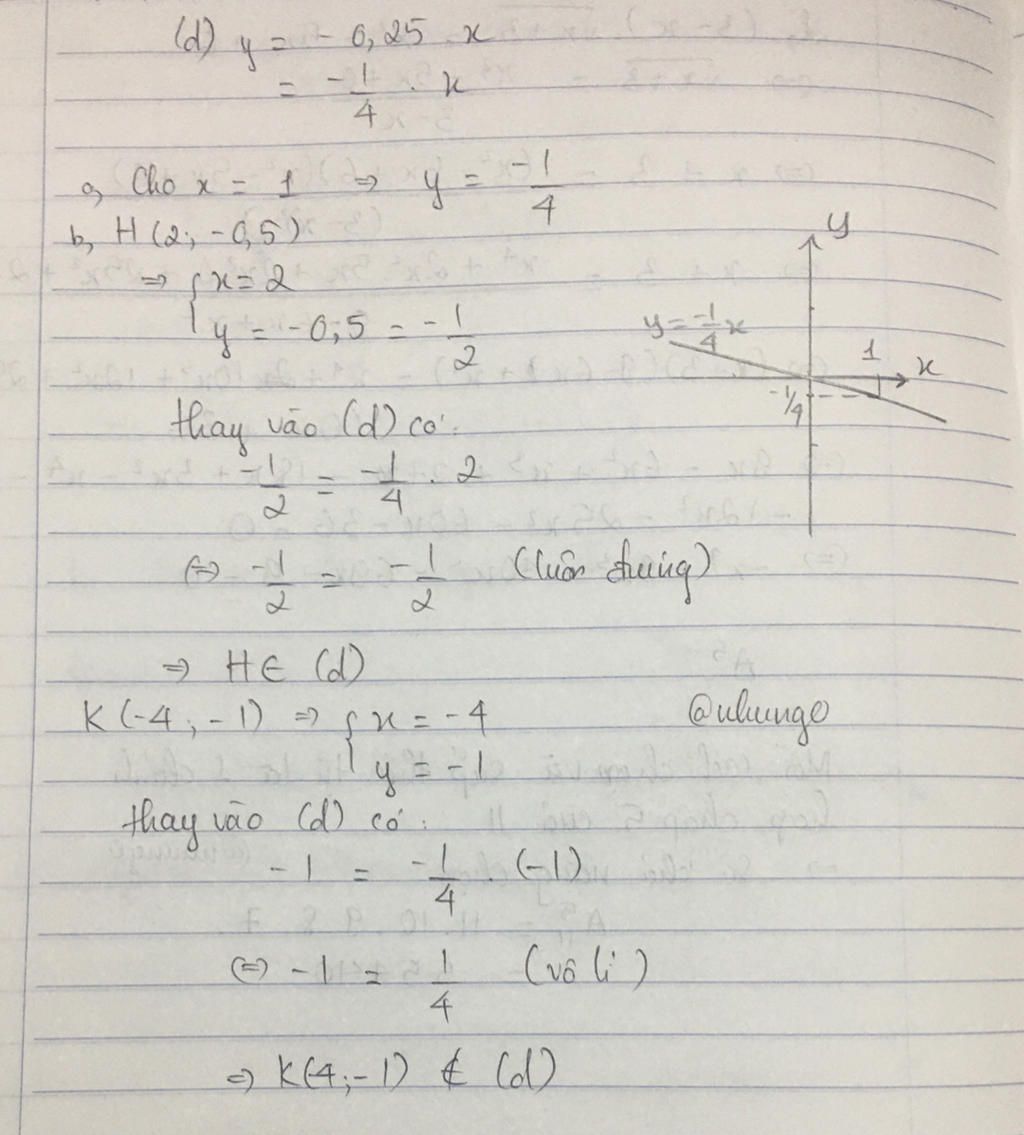 (d) y = - 0,25 x
= -1/4 . x
a, Cho x = 1 => y = -1/4
b, H (2; -0,5)
=> { x = 2
y = -0,5 = -1/2
thay vào (d) có:
-1/2 = -1/4 . 2
<=> -1/2 = -1/2 (luôn đúng)
=> H ∈ (d)
K (-4; -1) => { x = -4
y = -1
@nhungo
thay vào (d) có:
-1 = -1/4 . (-1)
<=> -1 = 1/4 (vô lí)
=> K(-4;-1) ∉ (d)
y
y = -1/4 x
1
x
-1/4